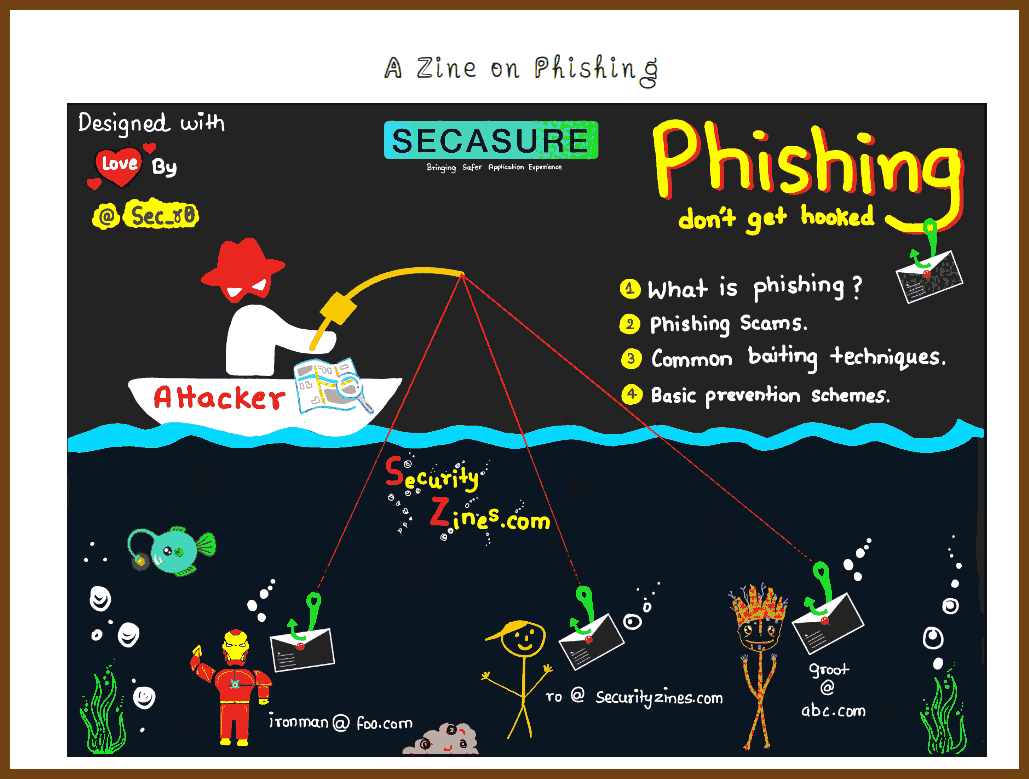 A Zine on Phishing
Designed with
Love By
@ Sec_r0
SECASURE
Bringing Safer Application Experience
Phishing
don't get hooked
1 What is phishing?
2 Phishing Scams.
3 Common baiting techniques.
4 Basic prevention schemes.
Attacker
Security
Zines.com
ironman@ foo.com
ro @ Securityzines.com
groot
@
abc.com